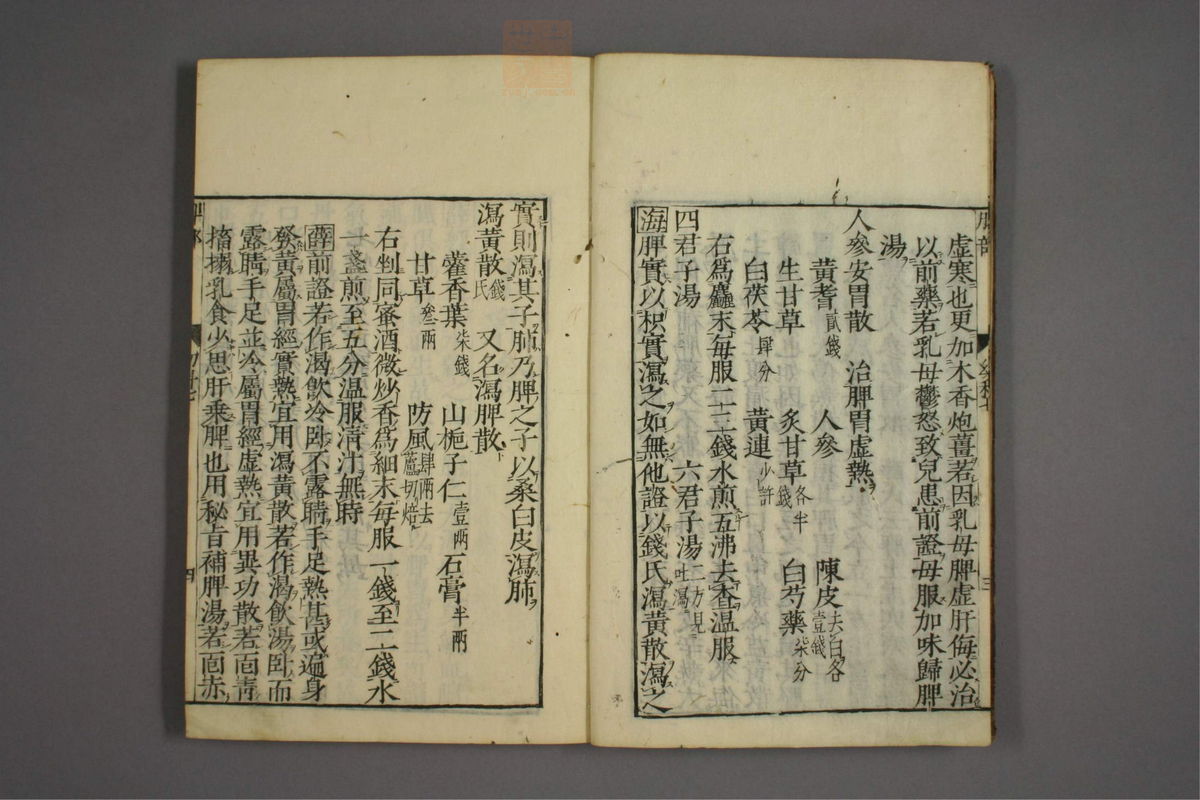 虛寒也更加木香炮薑若因乳母脾虛肝侮必治
以前藥若乳母鬱怒致兒患前證母服加味歸脾
湯
人參安胃散　治脾胃虛熱
黃耆貳錢　人參　陳皮去白各壹錢
生甘草　炙甘草各半錢　白芍藥柒分
白茯苓肆分　黃連少許
右爲麤末每服二三錢水煎五沸去查溫服
四君子湯　六君子湯二方見吐瀉
海脾實以枳實瀉之如無他證以錢氏瀉黃散瀉之
實則瀉其子肺乃脾之子以桑白皮瀉肺
瀉黃散錢氏　又名瀉脾散
藿香葉柒錢　山梔子仁壹兩　石膏半兩
甘草叄兩　防風肆兩去蘆切焙
右剉同蜜酒微炒香爲細末每服一錢至二錢水
一盞煎至五分溫服清汁無時
薛前證若作渴飲冷臥不露睛手足熱甚或遍身
發黃屬胃經實熱宜用瀉黃散若作渴飲湯臥而
露睛手足並冷屬胃經虛熱宜用異功散若面青
搐搦乳食少思肝乘脾也用秘旨補脾湯若面赤
四